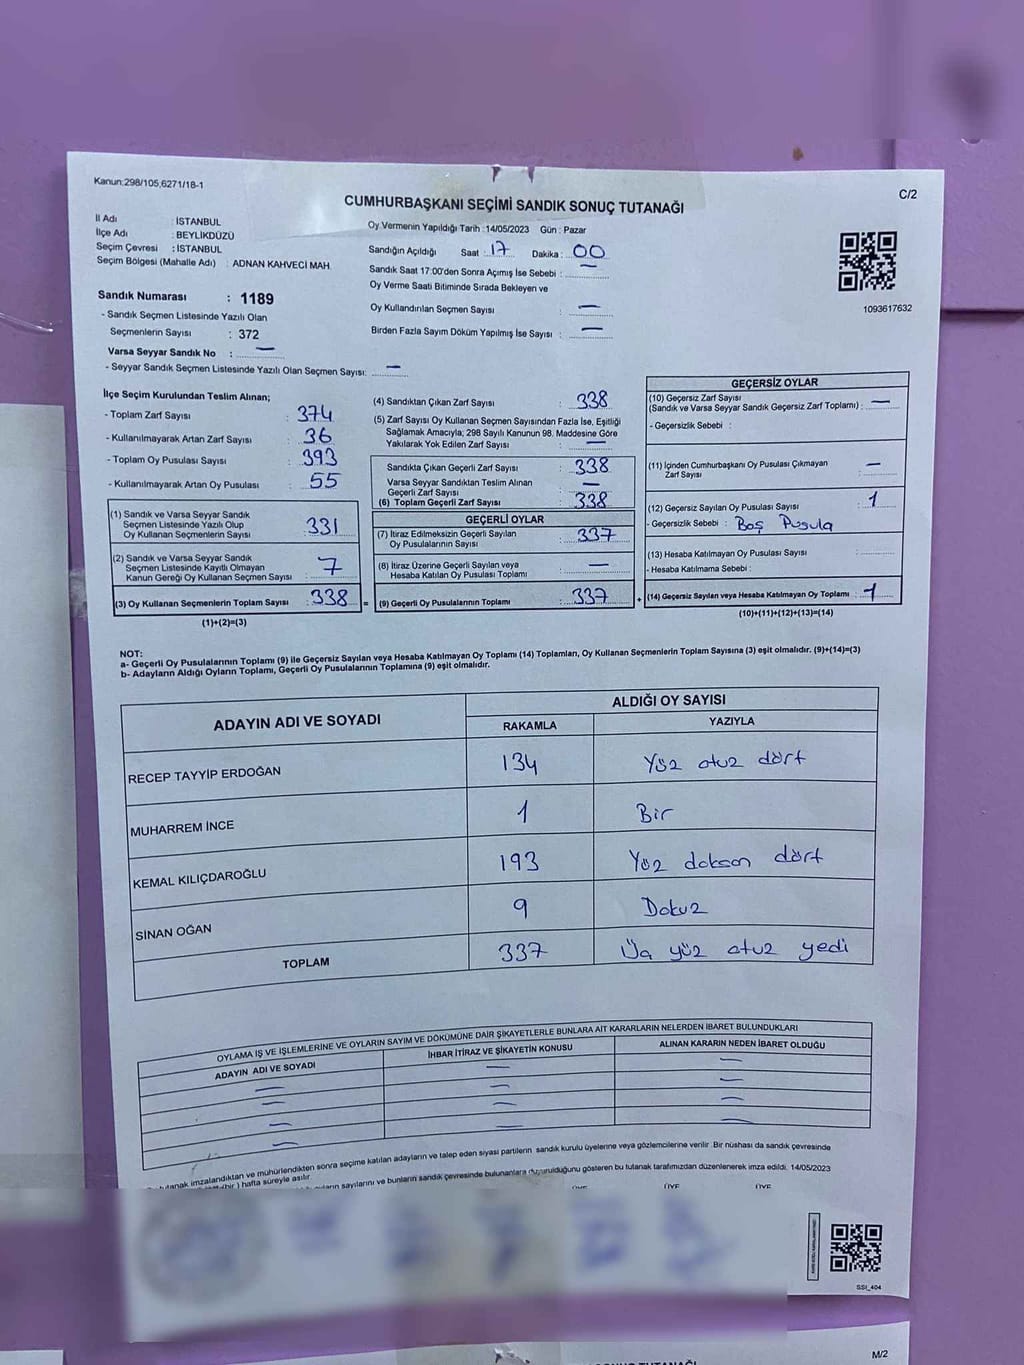 Kanun:298/105,6271/18-1
C/2
CUMHURBAŞKANI SEÇİMİ SANDIK SONUÇ TUTANAĞI
İl Adı : İSTANBUL
İlçe Adı : BEYLİKDÜZÜ
Seçim Çevresi : İSTANBUL
Seçim Bölgesi (Mahalle Adı) : ADNAN KAHVECİ MAH.
Sandık Numarası : 1189
- Sandık Seçmen Listesinde Yazılı Olan
Seçmenlerin Sayısı : 372
Varsa Seyyar Sandık No : —
- Seyyar Sandık Seçmen Listesinde Yazılı Olan Seçmen Sayısı: —
Oy Vermenin Yapıldığı Tarih :14/05/2023 Gün : Pazar
Sandığın Açıldığı Saat : 17 Dakika : 00
Sandık Saat 17:00'den Sonra Açımış İse Sebebi : —
Oy Verme Saati Bitiminde Sırada Bekleyen ve
Oy Kullandırılan Seçmen Sayısı : —
Birden Fazla Sayım Döküm Yapılmış İse Sayısı : —
1093617632
İlçe Seçim Kurulundan Teslim Alınan;
- Toplam Zarf Sayısı : 374
- Kullanılmayarak Artan Zarf Sayısı : 36
- Toplam Oy Pusulası Sayısı : 393
- Kullanılmayarak Artan Oy Pusulası : 55
(1) Sandık ve Varsa Seyyar Sandık
Seçmen Listesinde Yazılı Olup
Oy Kullanan Seçmenlerin Sayısı : 331
(2) Sandık ve Varsa Seyyar Sandık
Seçmen Listesinde Kayıtlı Olmayan
Kanun Gereği Oy Kullanan Seçmen Sayısı : 7
(3) Oy Kullanan Seçmenlerin Toplam Sayısı : 338
(1)+(2)=(3)
(4) Sandıktan Çıkan Zarf Sayısı : 338
(5) Zarf Sayısı Oy Kullanan Seçmen Sayısından Fazla İse, Eşitliği
Sağlamak Amacıyla; 298 Sayılı Kanunun 98. Maddesine Göre
Yakılarak Yok Edilen Zarf Sayısı : —
Sandıkta Çıkan Geçerli Zarf Sayısı : 338
Varsa Seyyar Sandıktan Teslim Alınan
Geçerli Zarf Sayısı : —
(6) Toplam Geçerli Zarf Sayısı : 338
GEÇERLİ OYLAR
(7) İtiraz Edilmeksizin Geçerli Sayılan
Oy Pusulalarının Sayısı : 337
(8) İtiraz Üzerine Geçerli Sayılan veya
Hesaba Katılan Oy Pusulası Toplamı : —
= (9) Geçerli Oy Pusulalarının Toplamı : 337
GEÇERSİZ OYLAR
(10) Geçersiz Zarf Sayısı
(Sandık ve Varsa Seyyar Sandık Geçersiz Zarf Toplamı) : —
- Geçersizlik Sebebi :
(11) İçinden Cumhurbaşkanı Oy Pusulası Çıkmayan
Zarf Sayısı : —
(12) Geçersiz Sayılan Oy Pusulası Sayısı : 1
- Geçersizlik Sebebi : Boş Pusula
(13) Hesaba Katılmayan Oy Pusulası Sayısı :
- Hesaba Katılmama Sebebi :
+ (14) Geçersiz Sayılan veya Hesaba Katılmayan Oy Toplamı : 1
(10)+(11)+(12)+(13)=(14)
NOT:
a- Geçerli Oy Pusulalarının Toplamı (9) ile Geçersiz Sayılan veya Hesaba Katılmayan Oy Toplamı (14) Toplamları, Oy Kullanan Seçmenlerin Toplam Sayısına (3) eşit olmalıdır. (9)+(14)=(3)
b- Adayların Aldığı Oyların Toplamı, Geçerli Oy Pusulalarının Toplamına (9) eşit olmalıdır.
ADAYIN ADI VE SOYADI ALDIĞI OY SAYISI
RAKAMLA YAZIYLA
RECEP TAYYİP ERDOĞAN 134 Yüz otuz dört
MUHARREM İNCE 1 Bir
KEMAL KILIÇDAROĞLU 193 Yüz doksan dört
SİNAN OĞAN 9 Dokuz
TOPLAM 337 Üç yüz otuz yedi
OYLAMA İŞ VE İŞLEMLERİNE VE OYLARIN SAYIM VE DÖKÜMÜNE DAİR ŞİKAYETLERLE BUNLARA AİT KARARLARIN NELERDEN İBARET BULUNDUKLARI
ADAYIN ADI VE SOYADI İHBAR İTİRAZ VE ŞİKAYETİN KONUSU ALINAN KARARIN NEDEN İBARET OLDUĞU
— — —
— — —
— — —
— — —
tutanak imzalandıktan ve mühürlendikten sonra seçime katılan adayların ve talep eden siyasi partilerin sandık kurulu üyelerine veya gözlemcilerine verilir. Bir nüshası da sandık çevresinde
(bir) hafta süreyle asılır.
sayılarını ve bunların sandık çevresinde bulunanlara duyurulduğunu gösteren bu tutanak tarafımızdan düzenlenerek imza edildi. 14/05/2023
ÜYE ÜYE ÜYE
SSI_404
M/2